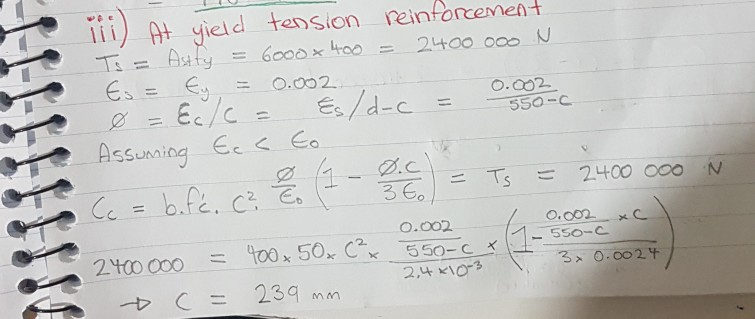 iii) At yield tension reinforcement
Ts = Asfy = 6000 × 400 = 2400 000 N
Es = Ey = 0.002
Ø = Ec/c = Es/d-c = 0.002/550-c
Assuming Ec < Eo
Cc = b.f'c. c². Ø/Eo (1 - Ø.c/3Eo) = Ts = 2400 000 N
2400000 = 400 × 50 × c² × 0.002/550-c/2,4×10-³ × (1 - 0.002/550-c × c/3 × 0.0024)
→ c = 239 mm